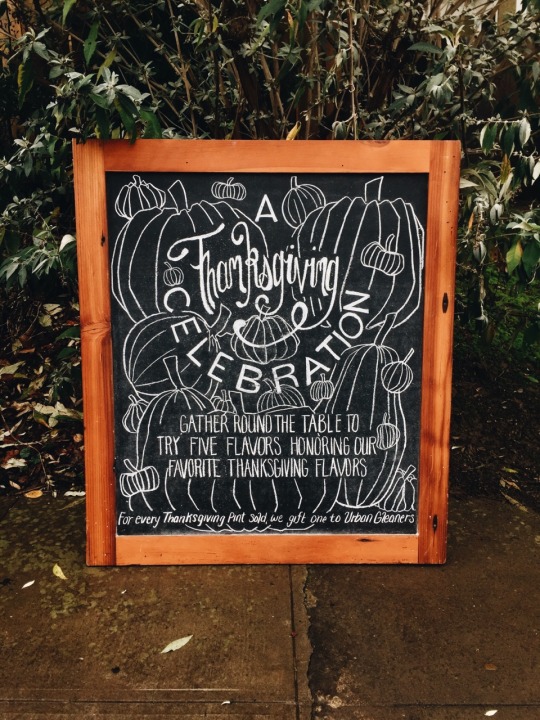 A
Thanksgiving
CELEBRATION
GATHER ROUND THE TABLE TO
TRY FIVE FLAVORS HONORING OUR
FAVORITE THANKSGIVING FLAVORS
For every Thanksgiving Pint sold, we gift one to Urban Gleaners